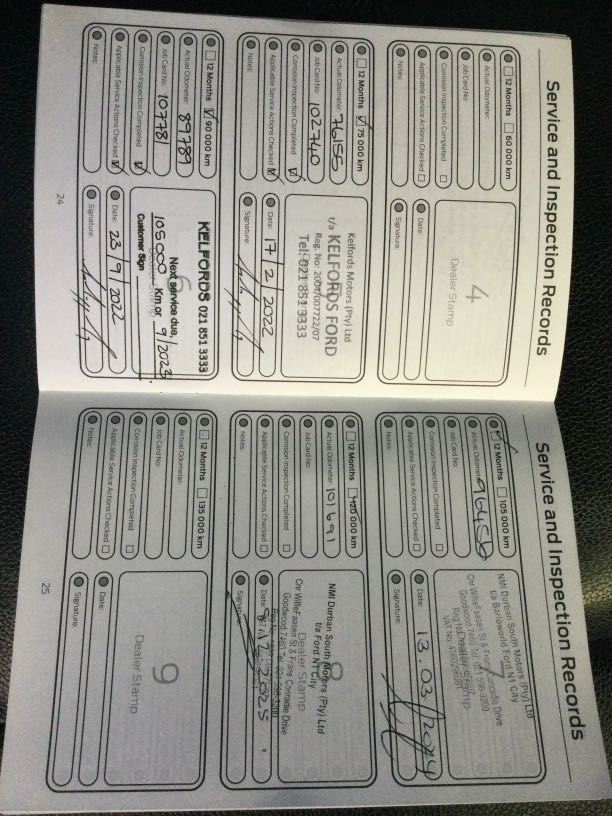 Service and Inspection Records
12 Months 60 000 km
Actual Odometer:
Job Card No:
Corrosion Inspection Completed
Applicable Service Actions Checked
Notes:
4
Dealer Stamp
Date:
Signature:
12 Months 75 000 km
Actual Odometer: 76155
Job Card No: 102740
Corrosion Inspection Completed
Applicable Service Actions Checked
Notes:
Kelfords Motors (Pty) Ltd
t/a KELFORDS FORD
Reg. No: 2006/007722/07
Tel: 021 851 3333
Date: 17/2/2022
Signature:
12 Months 90 000 km
Actual Odometer: 89789
Job Card No: 107781
Corrosion Inspection Completed
Applicable Service Actions Checked
Notes:
6
KELFORDS 021 851 3333
Next service due,
105000 Km or 9/2023
Customer Sign
Date: 23/9/2022
Signature:
24
Service and Inspection Records
12 Months 105 000 km
Actual Odometer: 96456
Job Card No:
Corrosion Inspection Completed
Applicable Service Actions Checked
Notes:
7
NMI Durban South Motors (Pty) Ltd
t/a Barloworld Ford N1 City
Cnr Willie Faasen St & Frans Conradie Drive
Goodwood 7460
Dealer Stamp
Date: 13.03/2024
Signature:
12 Months 120 000 km
Actual Odometer: 101691
Job Card No:
Corrosion Inspection Completed
Applicable Service Actions Checked
Notes:
8
NMI Durban South Motors (Pty) Ltd
t/a Ford N1 City
Dealer Stamp
Cnr Willie Faasen St & Frans Conradie Drive
Goodwood, 7460 Tel:
Date:
Signature:
12 Months 135 000 km
Actual Odometer:
Job Card No:
Corrosion Inspection Completed
Applicable Service Actions Checked
Notes:
9
Dealer Stamp
Date:
Signature:
25